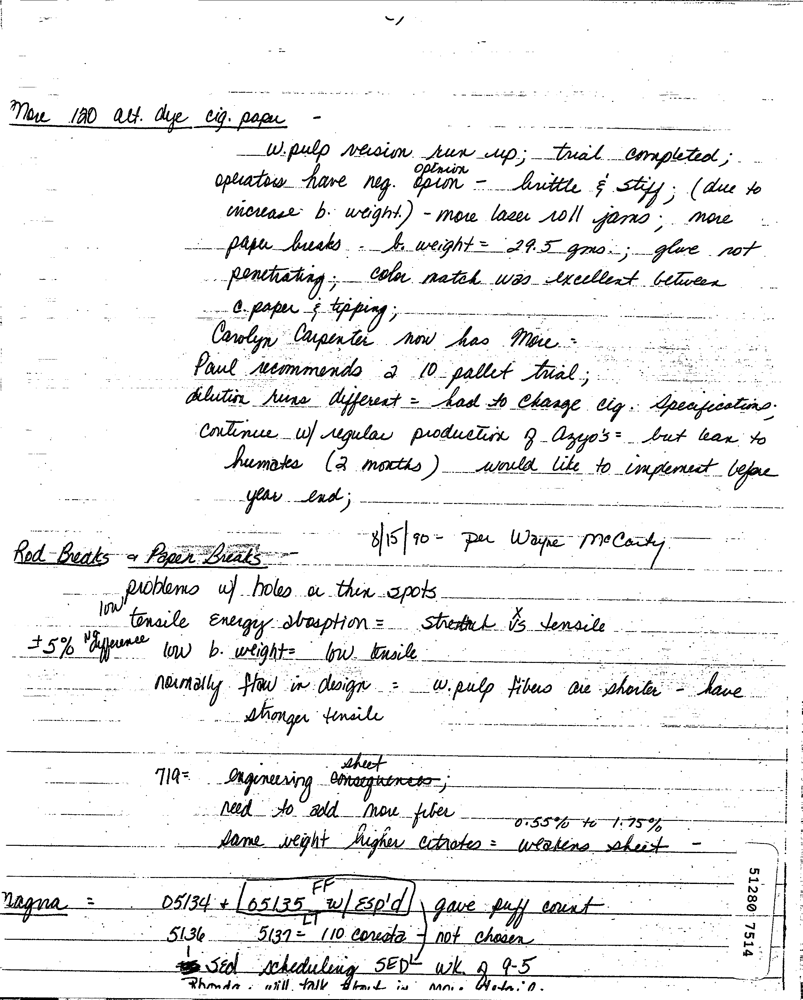 More 120 alt. dye cig. paper -
w. pulp version run up; trial completed;
opinion
operators have neg. opion - brittle & stiff; (due to
increase b. weight.) - more laser roll jams; more
paper breaks - b. weight = 29.5 gms.; glue not
penetrating; color match was excellent between
c. paper & tipping;
Carolyn Carpenter now has More =
Paul recommends a 10 pallet trial;
dilution runs different = had to change cig. specifications;
continue w/ regular production of Azyo's = but lean to
humates (2 months) would like to implement before
year end;
8/15/90 - per Wayne McCarty
Rod Breaks & Paper Breaks -
problems w/ holes or thin spots
low tensile energy absoption = vs tensile
± 5% No difference low b. weight = low tensile
normally flow in design = w. pulp fibers are shorter - have
stronger tensile
sheet
719 = engineering consequences;
need to add more fiber
0.55% to 1.75%
same weight higher citrates = weakens sheet -
Magna = 05134 + 05135 FF w/ Esp'd gave puff count
LT
5136 5137 = 110 coresta - not chosen
SED scheduling SED wk. of 9-5
Rhonda will talk about in more detail.
51280 7514